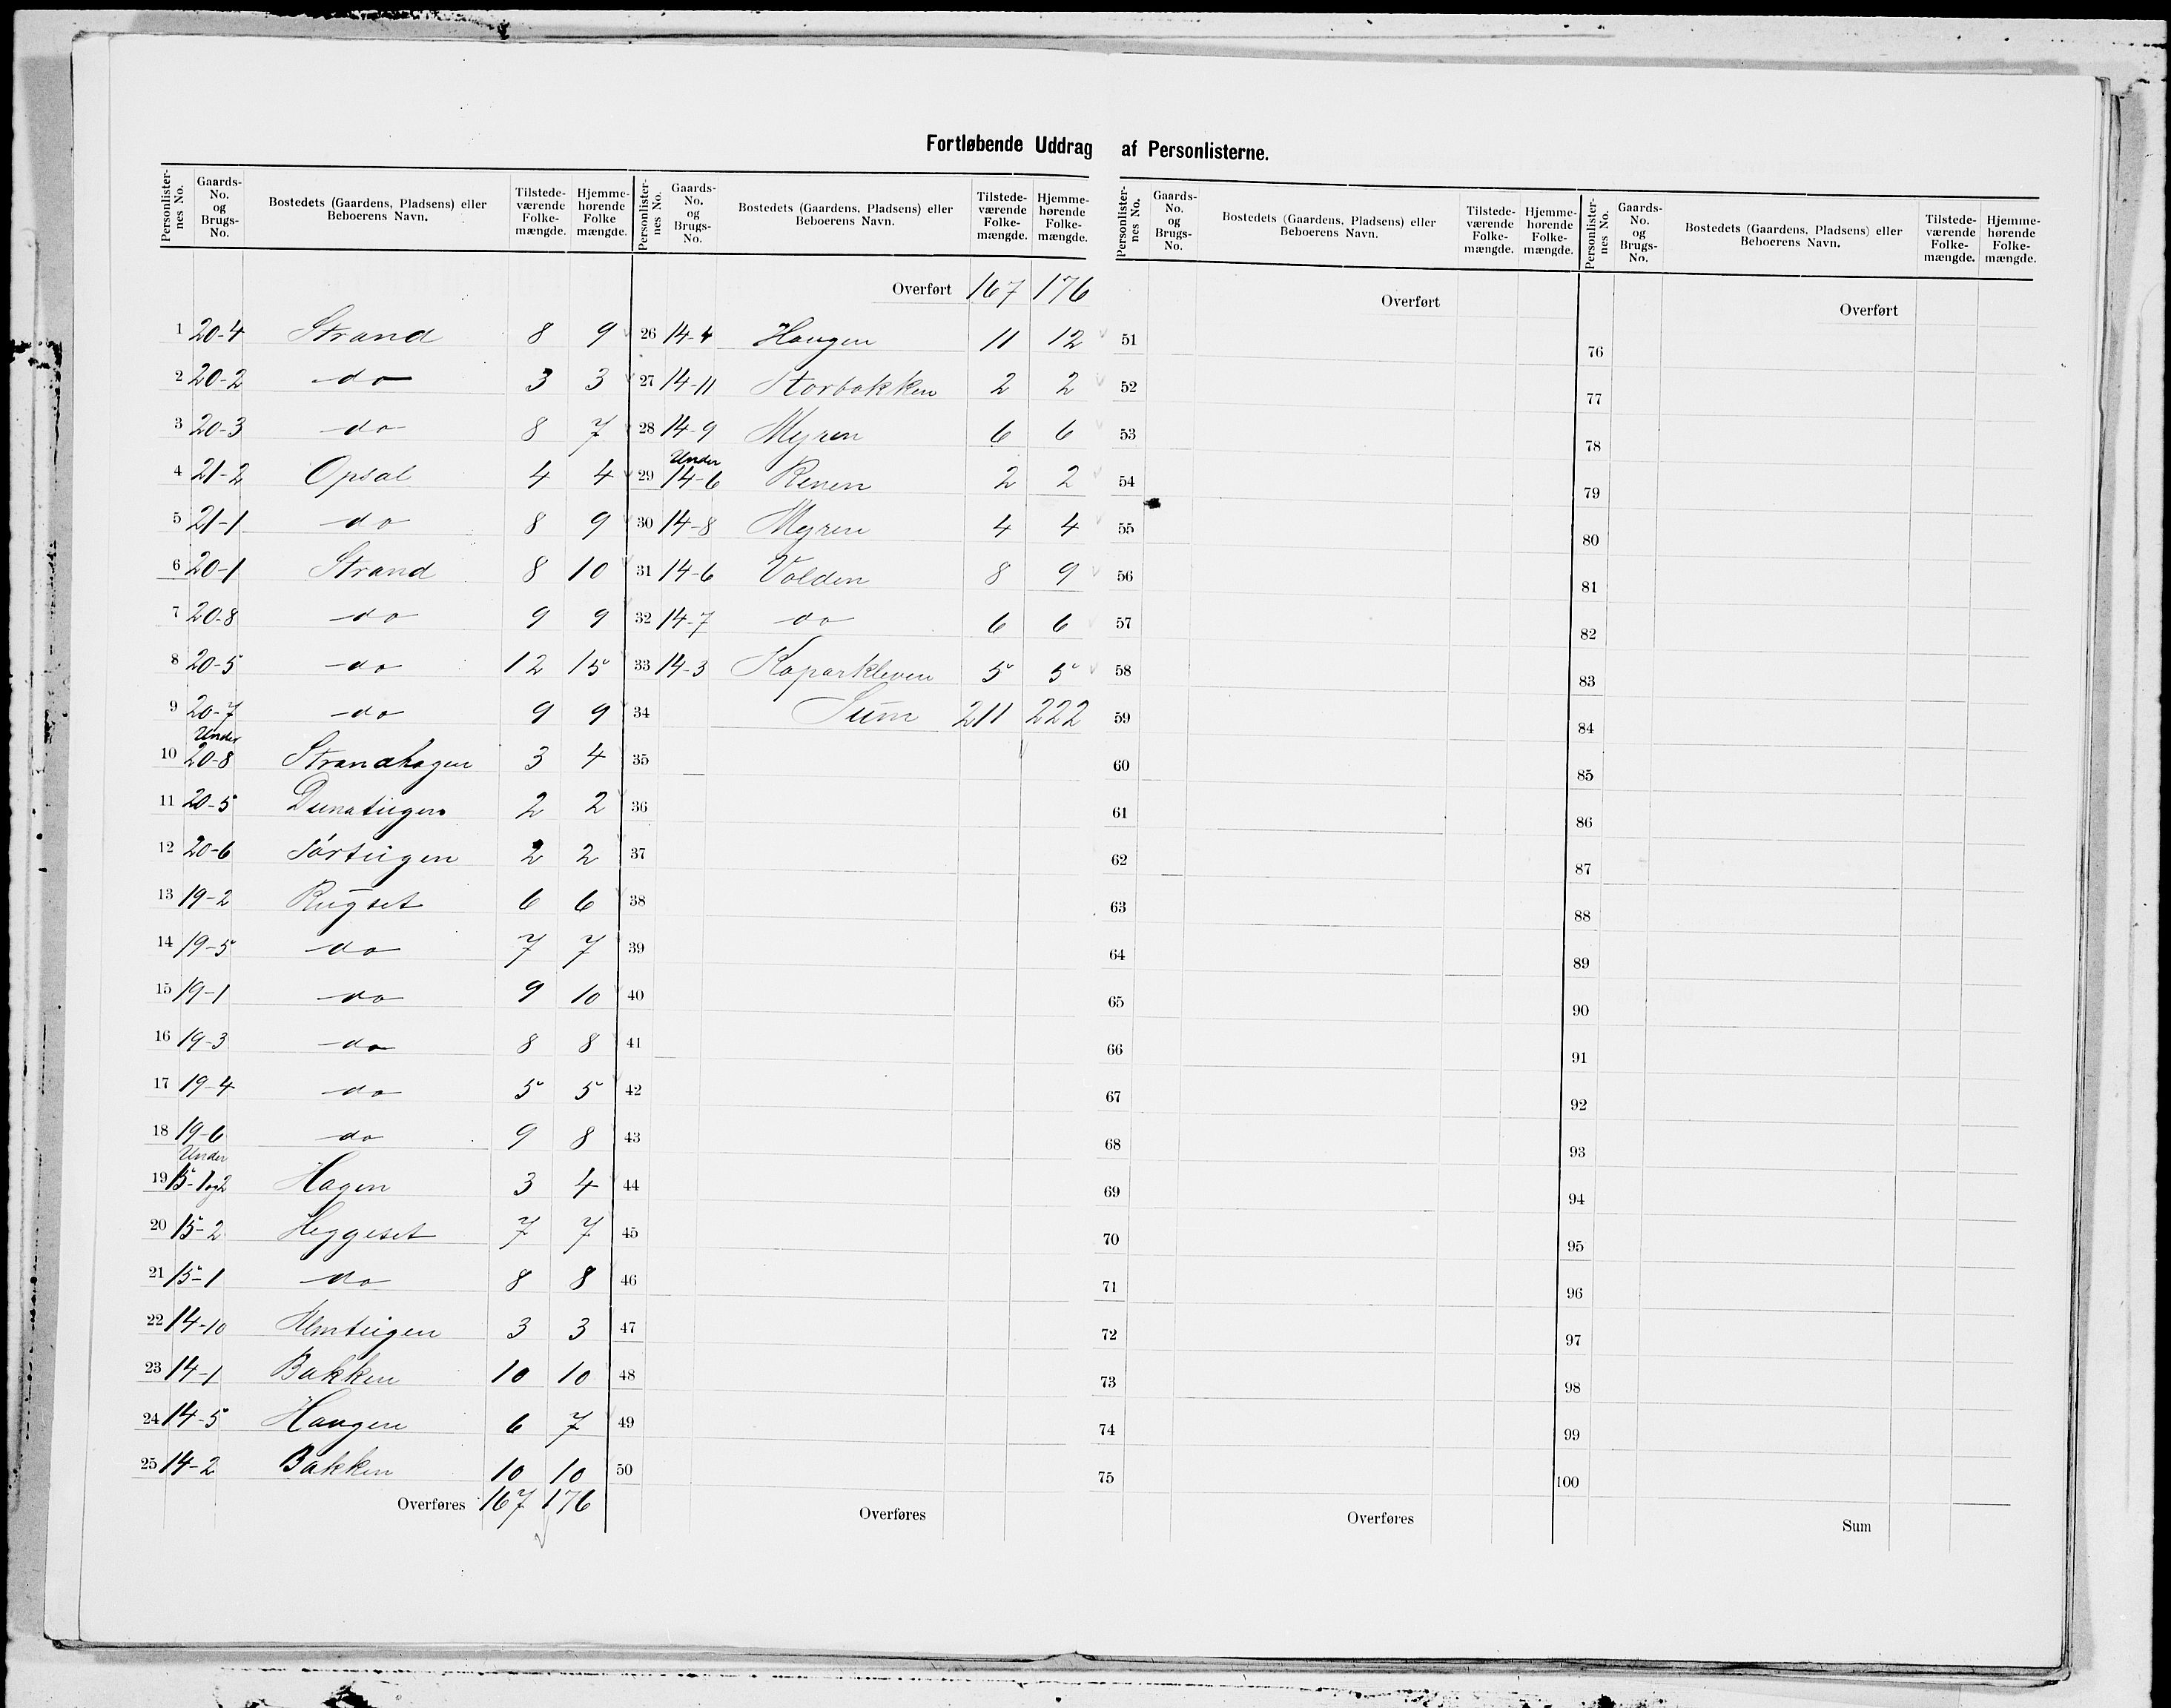 Fortløbende Uddrag af Personlisterne.
Personlisternes No. Gaards-No. og Brugs-No. Bostedets (Gaardens, Pladsens) eller Beboerens Navn. Tilstedeværende Folkemængde. Hjemmehørende Folkemængde.
1 20-4 Strand 8 9
2 20-2 do 3 3
3 20-3 do 8 7
4 21-2 Opsal 4 4
5 21-1 do 8 9
6 20-1 Strand 8 10
7 20-8 do 9 9
8 20-5 do 12 15
9 20-7 do 9 9
10 Under 20-8 Strandhagen 3 4
11 20-5 Dunatugen 2 2
12 20-6 Sørtugen 2 2
13 19-2 Rugset 6 6
14 19-5 do 7 7
15 19-1 do 9 10
16 19-3 do 8 8
17 19-4 do 5 5
18 19-6 do 9 8
19 Under 15-1og2 Hagen 3 4
20 15-2 Heggeset 7 7
21 15-1 do 8 8
22 14-10 Almtugen 3 3
23 14-1 Bakken 10 10
24 14-5 Haugen 6 7
25 14-2 Bakken 10 10
Overføres 167 176
Personlisternes No. Gaards-No. og Brugs-No. Bostedets (Gaardens, Pladsens) eller Beboerens Navn. Tilstedeværende Folkemængde. Hjemmehørende Folkemængde.
Overført 167 176
26 14-4 Haugen 11 12
27 14-11 Storbakken 2 2
28 14-9 Myren 6 6
29 Under 14-6 Renen 2 2
30 14-8 Myren 4 4
31 14-6 Volden 8 9
32 14-7 do 6 6
33 14-3 Koparkleven 5 5
34 Sum 211 222
35
36
37
38
39
40
41
42
43
44
45
46
47
48
49
50
Overføres
Personlisternes No. Gaards-No. og Brugs-No. Bostedets (Gaardens, Pladsens) eller Beboerens Navn. Tilstedeværende Folkemængde. Hjemmehørende Folkemængde.
Overført
51
52
53
54
55
56
57
58
59
60
61
62
63
64
65
66
67
68
69
70
71
72
73
74
75
Overføres
Personlisternes No. Gaards-No. og Brugs-No. Bostedets (Gaardens, Pladsens) eller Beboerens Navn. Tilstedeværende Folkemængde. Hjemmehørende Folkemængde.
Overført
76
77
78
79
80
81
82
83
84
85
86
87
88
89
90
91
92
93
94
95
96
97
98
99
100
Sum